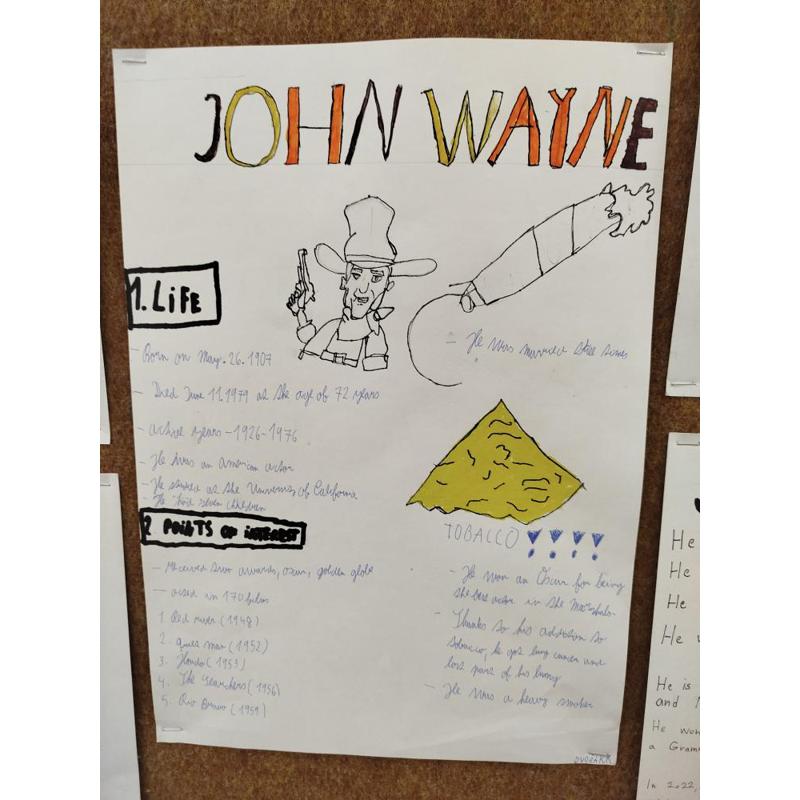 JOHN WAYNE
1. LiFE
- Born on May. 26. 1907
- Died June 11.1979 at the age of 72 years
- active years - 1926-1976
- He was an american actor
- He studied at the University of California
- He had seven children
- He was married three times
2 POiNTS OF iNTEREST
- received two awards, oscar, golden globe
- acted in 170 films
1. Red river (1948)
2. quiet man (1952)
3. Hondo (1953)
4. The Searchers (1956)
5. Rio Bravo (1959)
TOBACCO !!!!
- He won an Oscar for being
the best actor in the
- Thanks to his addiction to
tobacco, he got lung cancer and
lost part of his lung
- He was a heavy smoker
DVOŘÁK
He
He
He
He
He is
and
He won
a Gramm
In 2022,